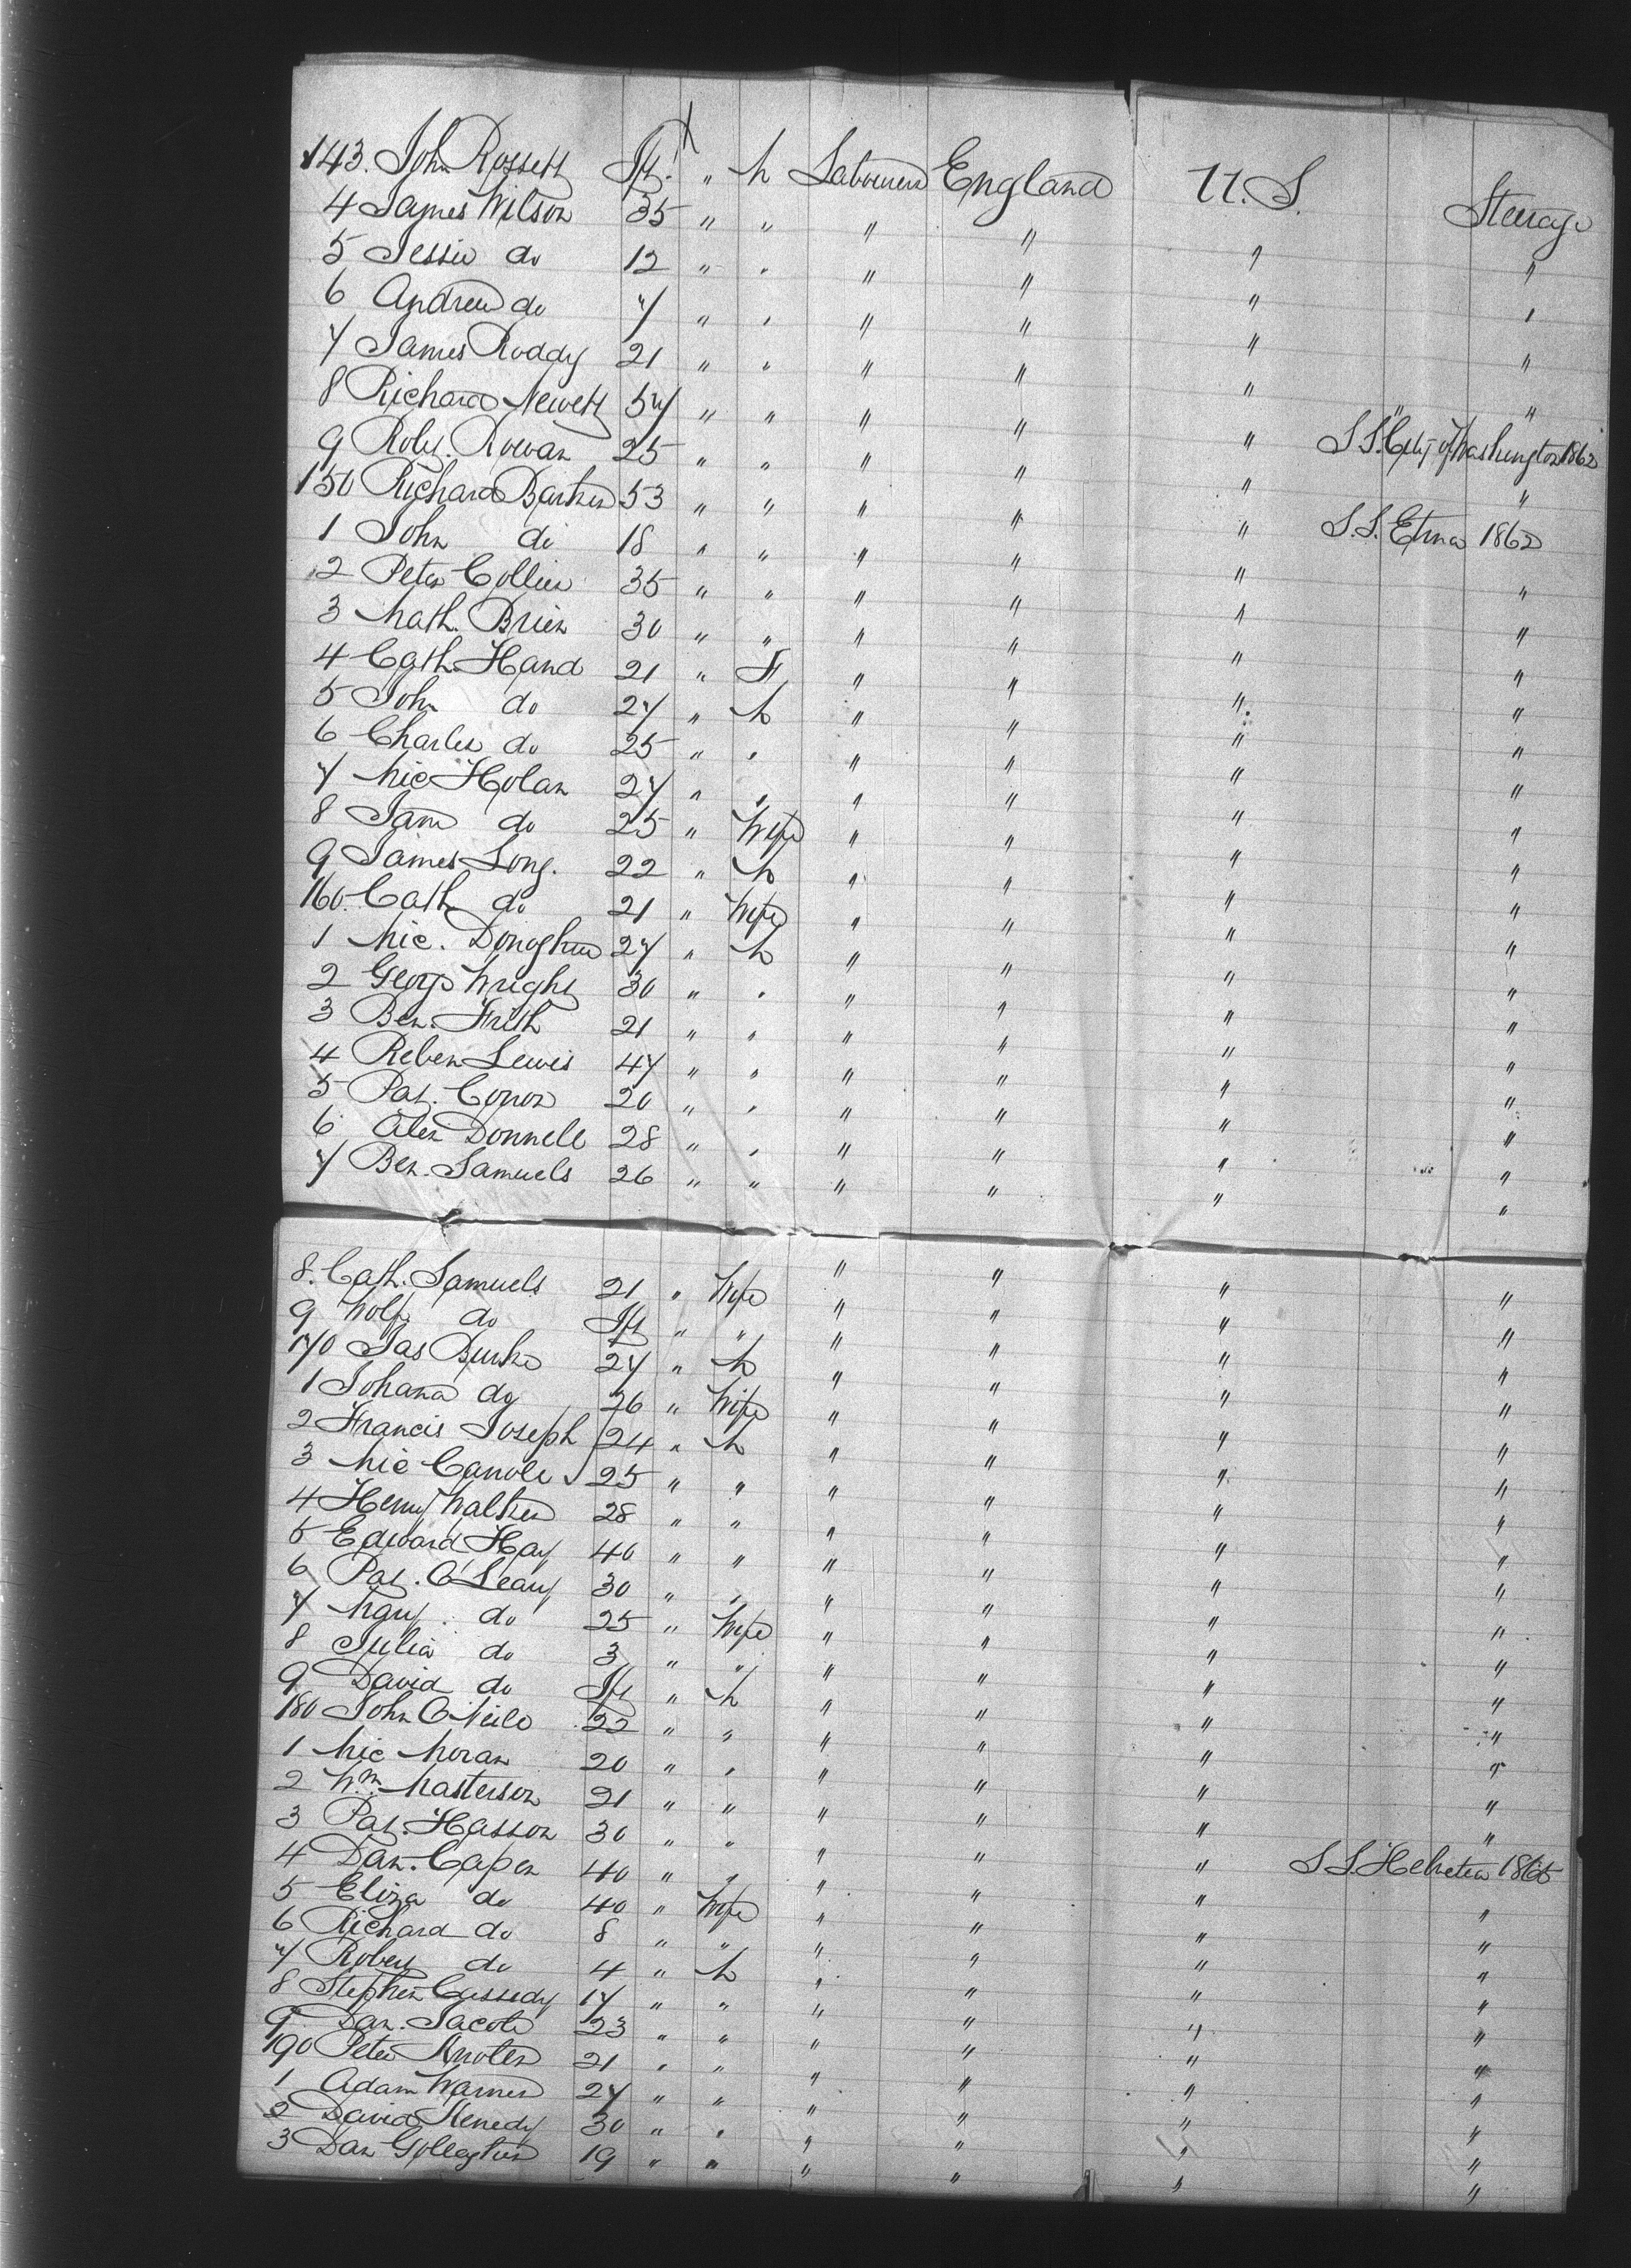 143. John Rossett Ift. " M Labourers England U.S. Steerage
4 James Wilson 35 " " " " " "
5 Jessie do 12 " " " " " "
6 Andrew do 7 " " " " " "
7 James Roddy 21 " " " " " "
8 Richard Newett 57 " " " " " "
9 Robt. Rowan 25 " " " " " S.S. City of Washington 1862
150 Richard Barker 53 " " " " " "
1 John do 18 " " " " " S.S. Etna 1862
2 Peter Collier 35 " " " " " "
3 Math. Brien 30 " " " " " "
4 Cath. Hand 21 " F " " " "
5 John do 27 " M " " " "
6 Charles do 25 " " " " " "
7 Mic Holan 27 " " " " " "
8 Jane do 25 " Wife " " " "
9 James Long. 22 " M " " " "
160. Cath do 21 " Wife " " " "
1 Mic. Donoghue 27 " M " " " "
2 George Wright 30 " " " " " "
3 Ben. Frith 21 " " " " " "
4 Reben Lewis 47 " " " " " "
5 Pat. Conon 20 " " " " " "
6 Alex Donnell 28 " " " " " "
7 Ben. Samuels 26 " " " " " "
8. Cath. Samuels 21 " Wife " " " "
9 Wolf do Ift " " " " " "
170 Jas Burke 27 " M " " " "
1 Johana do 26 " Wife " " " "
2 Francis Joseph 24 " M " " " "
3 Mic Canole 25 " " " " " "
4 Henry Walker 28 " " " " " "
5 Edward Hay 40 " " " " " "
6 Pat. O'Leary 30 " " " " " "
7 Mary do 25 " Wife " " " "
8 Julia do 3 " " " " " "
9 David do Ift " M " " " "
180 John O'Neile 22 " " " " " "
1 Mic Moran 20 " " " " " "
2 Wm. Masterson 21 " " " " " "
3 Pat. Hasson 30 " " " " " "
4 Dan. Capen 40 " " " " " S.S. Helvetia 1865
5 Eliza do 40 " Wife " " " "
6 Richard do 8 " " " " " "
7 Robert do 4 " M " " " "
8 Stephen Cassedy 17 " " " " " "
9 Dan. Jacobs 23 " " " " " "
190 Peter 21 " " " " " "
1 Adam Warner 27 " " " " " "
2 David Kenedy 30 " " " " " "
3 Dan 19 " " " " " "